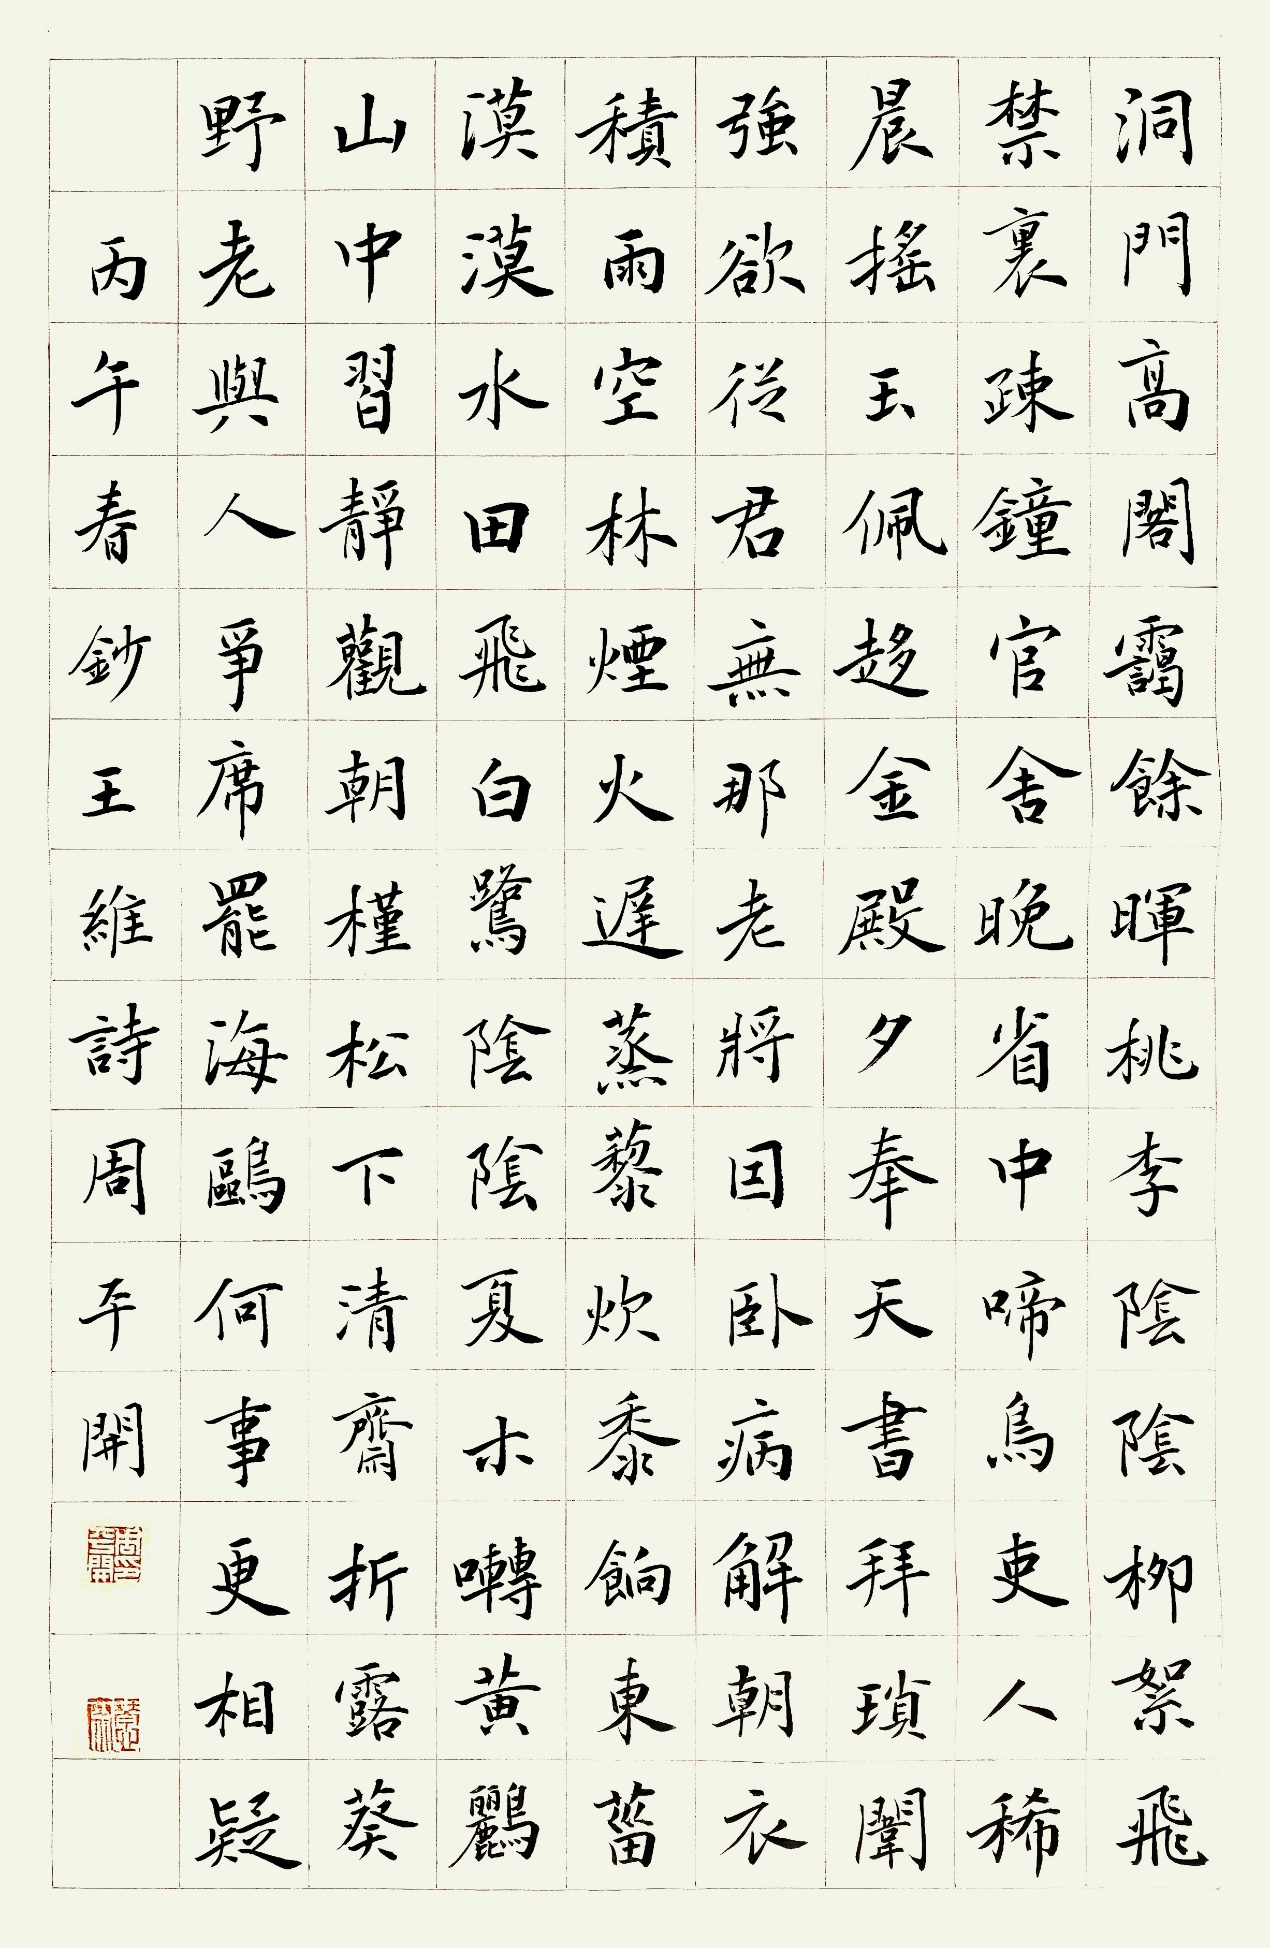 洞門高閣靄餘暉桃李陰陰柳絮飛
禁裏疎鐘官舍晚省中啼鳥吏人稀
晨搖玉佩趍金殿夕奉天書拜瑣闈
強欲從君無那老將因臥病解朝衣
積雨空林煙火遲蒸藜炊黍餉東菑
漠漠水田飛白鷺陰陰夏木囀黃鸝
山中習靜觀朝槿松下清齋折露葵
野老與人爭席罷海鷗何事更相疑
丙午春鈔王維詩周平開